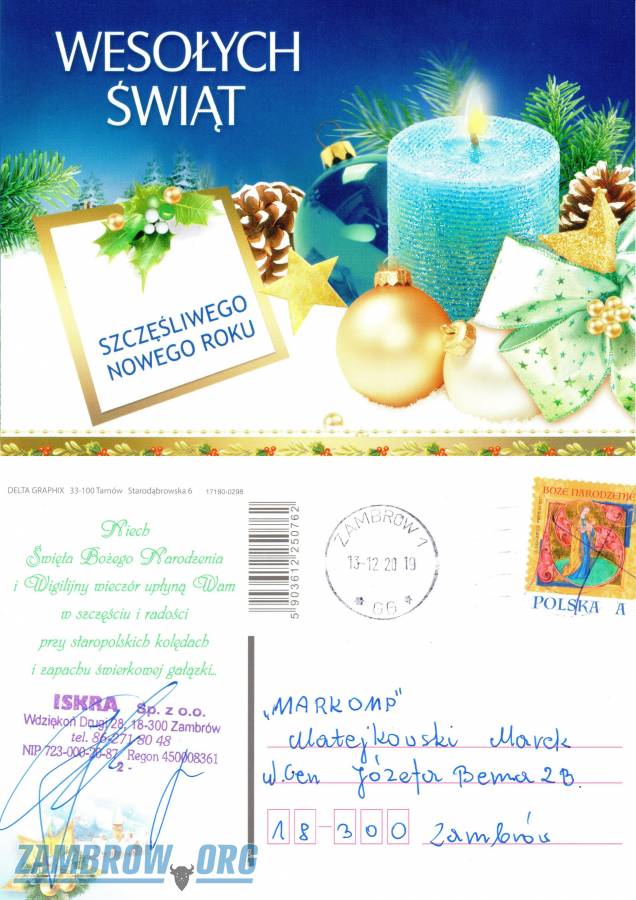 WESOŁYCH
ŚWIĄT
SZCZĘŚLIWEGO
NOWEGO ROKU
DELTA GRAPHIX 33-100 Tarnów Starodąbrowska 6 17180-0298
Niech
Święta Bożego Narodzenia
i Wigilijny wieczór upłyną Wam
w szczęściu i radości
przy staropolskich kolędach
i zapachu świerkowej gałązki...
5903612250762
ZAMBRÓW 1
13-12 20 19
* GG *
BOŻE NARODZENIE
POLSKA A
ISKRA Sp. z o.o.
Wdziękoń Drugi 28, 18-300 Zambrów
tel. 86-271 80 48
NIP 723-000-20-87, Regon 450008361
- 2 -
„MARKOMP"
Matejkowski Marek
ul. Gen Józefa Bema 2B.
18-300 Zambrów
ZAMBROW.ORG